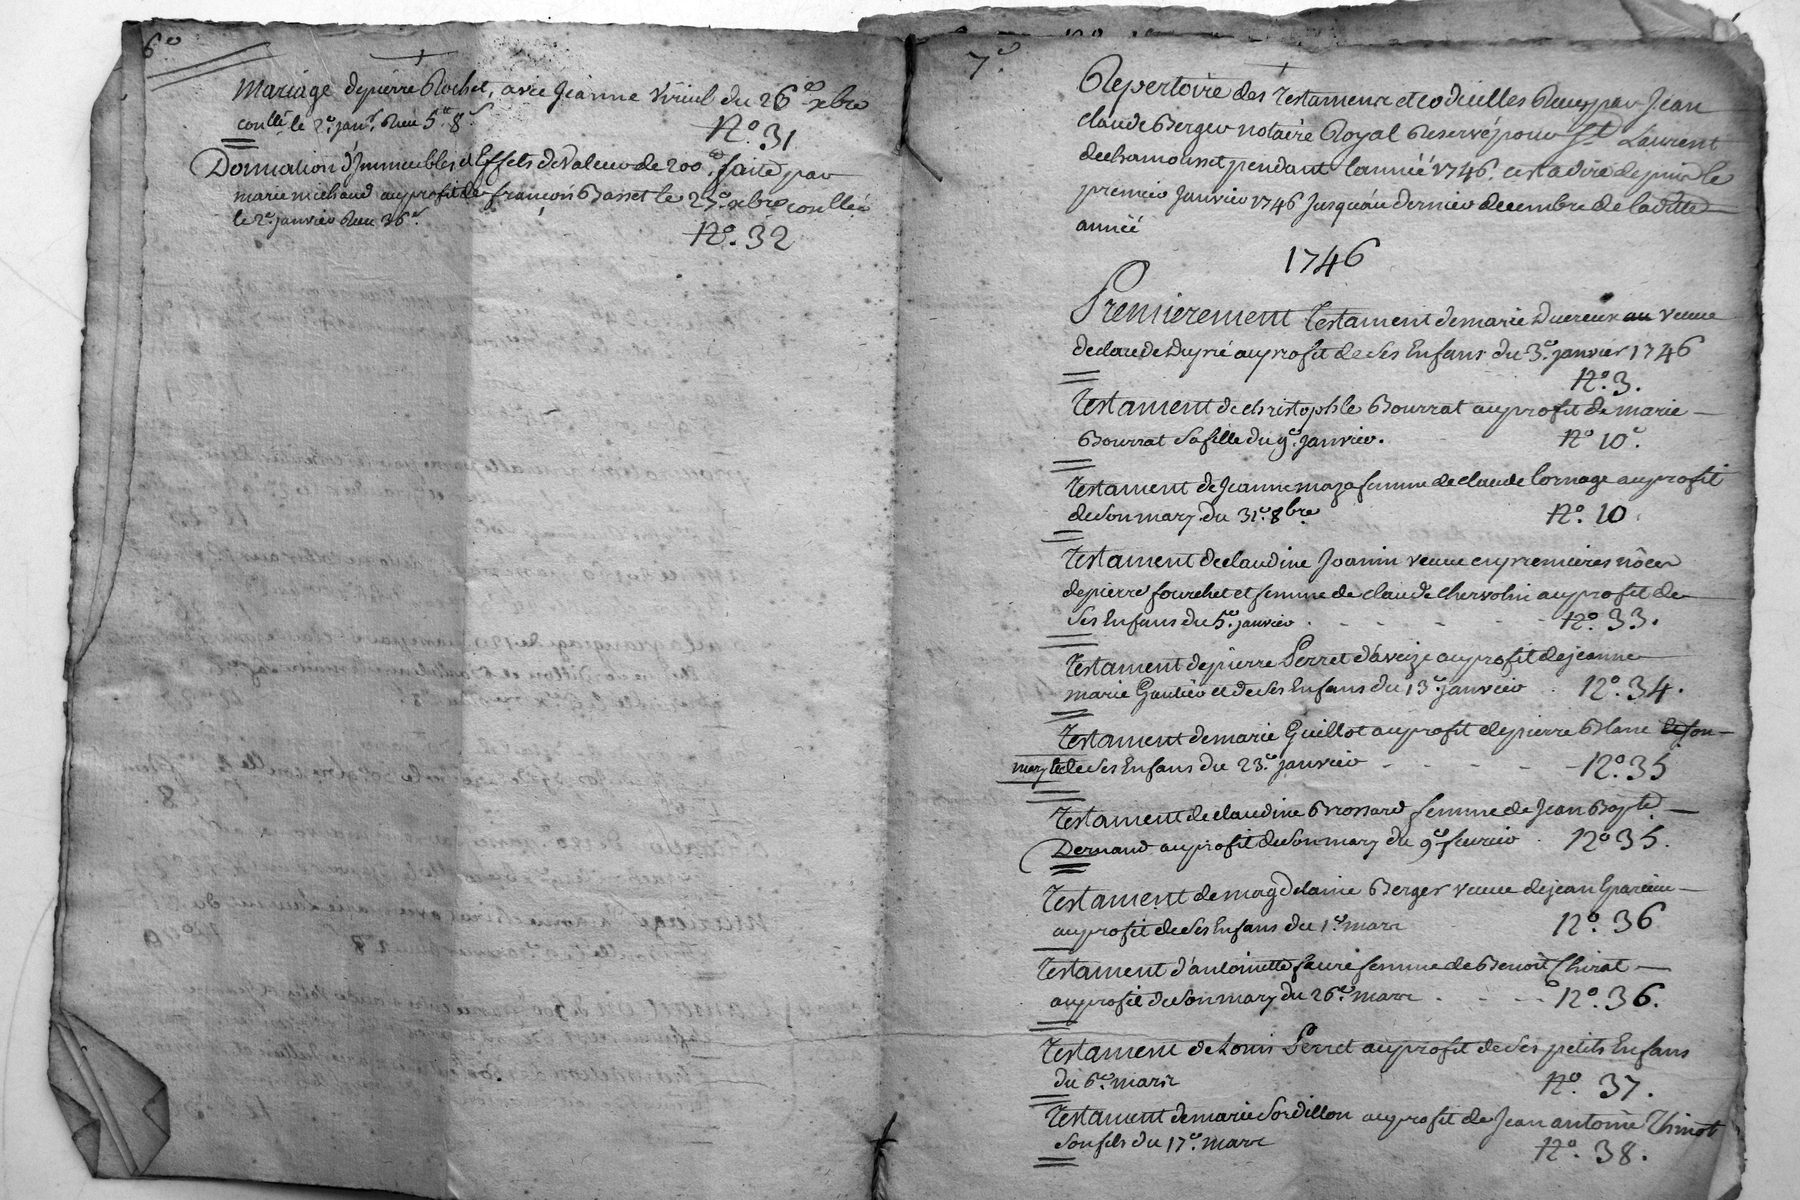 6e
Mariage de pierre Rochet, avec Jeanne Viriel du 26e xbre
conllé le 2e janr. Reu 5# 8s
No. 31
Donnation d'Immeubles et Effets de Valeur de 200# faite par
marie michaud au profit de françois Basset le 27e xbre conllée
le 2e janvier Reu 36s
No. 32
7e
Repertoire des Testaments et codicilles Reus par Jean
claude Berger notaire Royal Reservé pour St Laurent
de chamousset pendant l'année 1746. cest a dire depuis le
premier Janvier 1746 Jusqu'au dernier decembre de laditte
année
1746
Premierement Testament de marie Ducreux veuve
de claude Dupré au profit de Ses Enfans du 3e. janvier 1746
No. 3.
Testament de christophle Bourrat au profit de marie
Bourrat Sa fille du 9e. janvier. No 10e.
Testament de Jeanne maza femme de claude Cornage au profit
de Son mary du 31e. 8bre No. 10
Testament de claudine Joanin veuve en premieres nôces
de pierre fourchet et femme de claude chervolin au profit de
Ses Enfans du 5e. janvier No. 33.
Testament de pierre Perret d'aveize au profit de jeanne
marie Gautier et de Ses Enfans du 13e. janvier No. 34.
Testament de marie Guillot au profit de pierre Blanc Son
mary et de Ses Enfans du 23e. janvier No. 35
Testament de claudine Brossard femme de Jean Bapte
Dernand au profit de Son mary du 9e fevrier No 35.
Testament de magdelaine Berger veuve de jean
au profit de Ses Enfans du 1er. mars No. 36
Testament d'antoinette faure femme de Benoit Chirat
au profit de Son mary du 26e. mars No. 36.
Testament de Louis Perret au profit de Ses petits Enfans
du 6e. mars No. 37.
Testament de marie Sordillon au profit de Jean antoine Thinot
Son fils du 17e. mars No. 38.